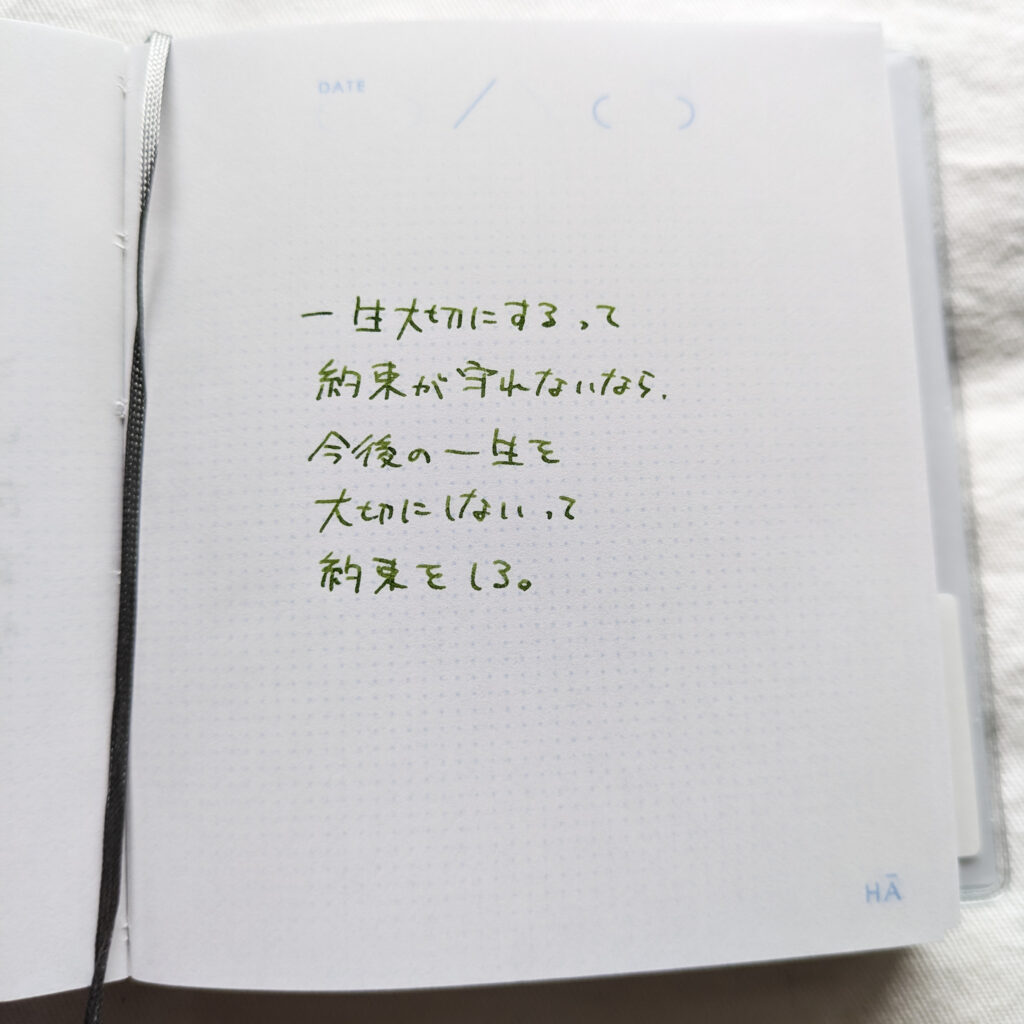 DATE / ( )
一生大切にするって
約束が守れないなら、
今後の一生を
大切にしないって
約束をしろ。
HĀ